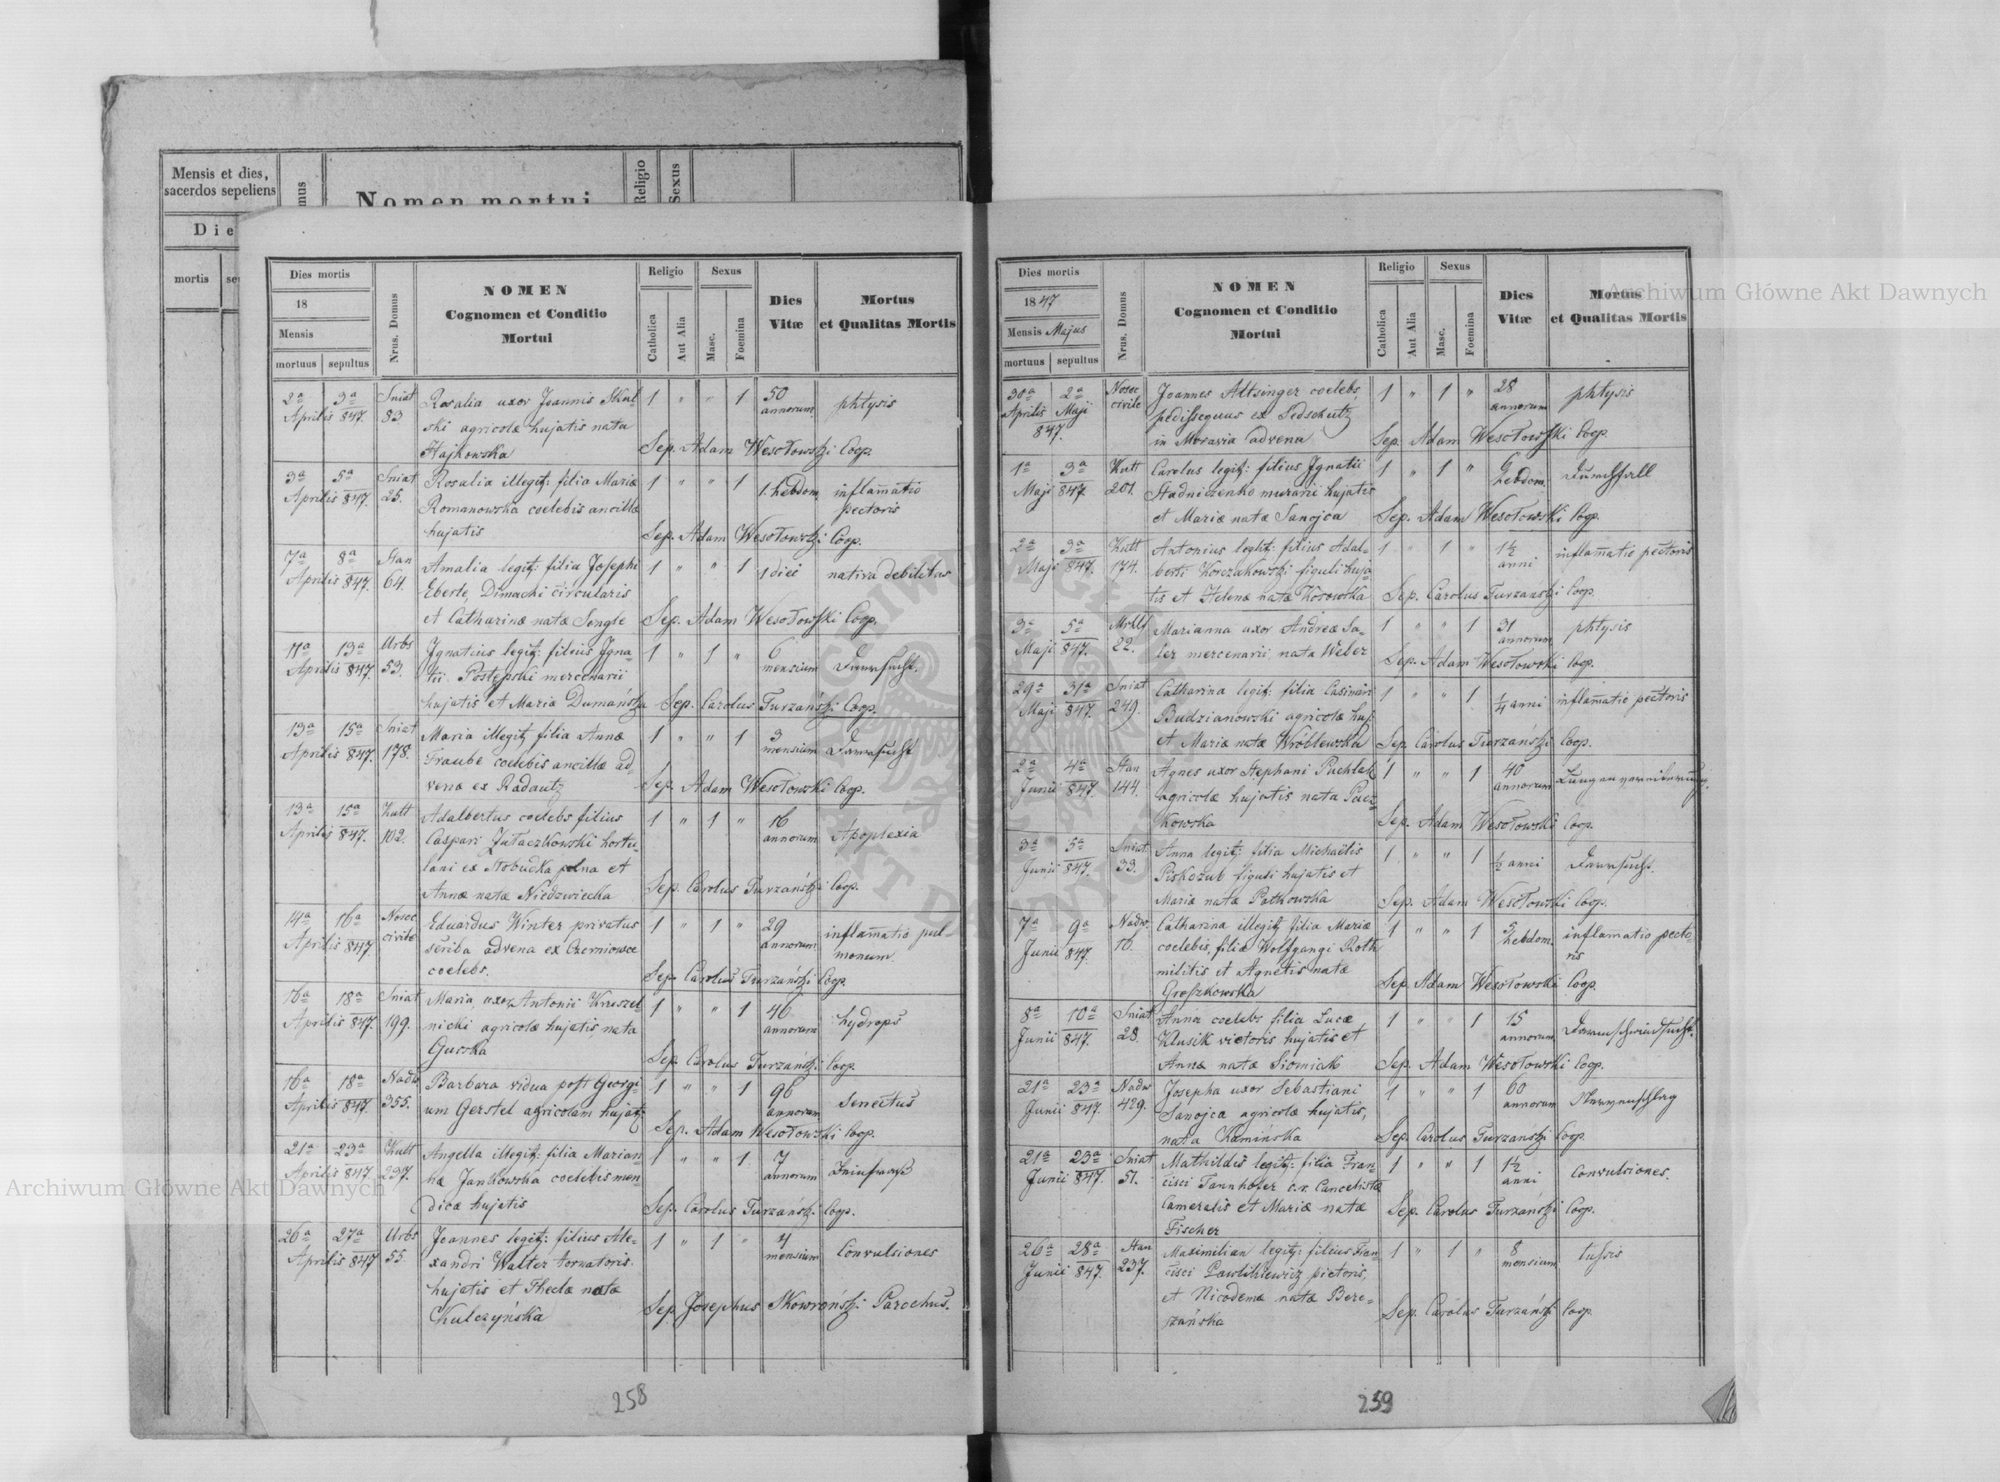 Mensis et dies,
sacerdos sepeliens
Nomen mortui
Religio
Sexus
mortis
Dies mortis
18
Mensis
mortuus sepultus
Nrus. Domus
NOMEN
Cognomen et Conditio
Mortui
Religio
Catholica
Aut Alia
Sexus
Masc.
Foemina
Dies
Vitæ
Mortus
et Qualitas Mortis
2a 3a Sniat Rosalia uxor Joannis Skul- 1 " " 1 50 phtysis
Aprilis 847. 83 ski agricolæ hujatis nata annorum
Hajkowska Sep. Adam Wesołowski Coop.
3a 5a Sniat Rosalia illegit: filia Mariæ 1 " " 1 1. hebdom. inflamatio
Aprilis 847. 25. Romanowska coelebis ancillæ pectoris
hujatis Sep. Adam Wesołowski Coop.
7a 8a Stan Amalia legit: filia Josephi 1 " " 1 1 diei nativa debilitas
Aprilis 847. 64. Eberle, Dimachi circularis
et Catharinæ natæ Sengle Sep. Adam Wesołowski Coop.
11a 13a Urbs Ignatius legit: filius Igna- 1 " 1 " 6 Darrsucht.
Aprilis 847. 53. tii Postępski mercenarii mensium
hujatis et Maria Dumańska Sep. Carolus Turzański Coop.
13a 15a Sniat Maria illegit filia Annæ 1 " " 1 3 Darrsucht
Aprilis 847. 178. Traube coelebis ancillæ ad- mensium
vena ex Radautz Sep. Adam Wesołowski Coop.
13a 15a Kutt Adalbertus coelebs filius 1 " 1 " 16 Apoplexia
Aprilis 847. 102. Caspari Zułaczkowski hortu- annorum
lani ex Słobudka polna et
Annæ natæ Niedzwiecka Sep. Carolus Turzański Coop.
14a 16a Nosoc Eduardus Winter privatus 1 " 1 " 29 inflamatio pul-
Aprilis 847 civile scriba advena ex Czerniowce annorum monum.
coelebs. Sep. Carolus Turzański Coop.
16a 18a Sniat Maria uxor Antonii Kruszel- 1 " " 1 46 hydrops
Aprilis 847. 199. nicki agricolæ hujatis, nata annorum
Guzska Sep. Carolus Turzański Coop.
16a 18a Nadw Barbara vidua post Georgi- 1 " " 1 96 Senectus
Aprilis 847. 355. um Gerstel agricolam hujat: annorum
Sep. Adam Wesołowski Coop.
21a 23a Kutt Angella illegit: filia Marian- 1 " " 1 7
Aprilis 847. 297. na Jankowska coelebis men- annorum
dicæ hujatis Sep. Carolus Turzański Coop.
26a 27a Urbs Joannes legit: filius Ale- 1 " 1 " 4 Convulsiones
Aprilis 847 55. xandri Walter tornatoris mensium
hujatis et Theclæ natæ
Kulczyńska Sep. Josephus Skowroński Parochus.
258
Dies mortis
1847
Mensis Majus
mortuus sepultus
Nrus. Domus
NOMEN
Cognomen et Conditio
Mortui
Religio
Catholica
Aut Alia
Sexus
Masc.
Foemina
Dies
Vitæ
Mortus
et Qualitas Mortis
30a 2a Nosoc Joannes Altsinger coelebs, 1 " 1 " 28 phtysis
Aprilis Maji civile pedissequus ex Pedschutz annorum
847. in Moravia advena Sep. Adam Wesołowski Coop.
1a 3a Kutt Carolus legit: filius Ignatii 1 " 1 " 6 Durchfall
Maji 847. 201. Stadniczenko murarii hujatis hebdom.
et Mariæ natæ Sanojca Sep. Adam Wesołowski Coop.
2a 3a Kutt Antonius legit: filius Adal- 1 " 1 " 1½ inflamatio pectoris
Maji 847. 174. berti Korczakowski figuli huja- anni
tis et Helenæ natæ Kosowska Sep. Carolus Turzański Coop.
3a 5a Mrkll Marianna uxor Andreæ Sa- 1 " " 1 31 phtysis
Maji 847. 22. ler mercenarii, nata Weber annorum
Sep. Adam Wesołowski Coop.
29a 31a Sniat Catharina legit: filia Casimiri 1 " " 1 ¼ anni inflamatio pectoris
Maji 847. 249. Budzianowski agricolæ huj:
et Mariæ natæ Wróblewska Sep. Carolus Turzański Coop.
2a 4a Stan Agnes uxor Stephani Puchlak 1 " " 1 40 Lungenvereiterung.
Junii 847. 144. agricolæ hujatis nata Pacz- annorum
kowska Sep. Adam Wesołowski Coop.
3a 5a Sniat Anna legit: filia Michaëlis 1 " " 1 ½ anni Darrsucht.
Junii 847. 33. Piskozub figuli hujatis et
Mariæ natæ Patkowska Sep. Adam Wesołowski Coop.
7a 9a Nadw. Catharina illegit filia Mariæ 1 " " 1 3 inflamatio pecto-
Junii 847. 10. coelebis, filiæ Wolfgangi Roth hebdom. ris
militis et Agnetis natæ
Groszkowska Sep. Adam Wesołowski Coop.
8a 10a Sniat Anna coelebs filia Lucæ 1 " " 1 15
Junii 847. 28. Klusik victoris hujatis et annorum
Annæ natæ Siomiak Sep. Adam Wesołowski Coop.
21a 23a Nadw Josepha uxor Sebastiani 1 " " 1 60 Nervenschlag
Junii 847. 429. Sanojca agricolæ hujatis, annorum
nata Kamińska Sep. Carolus Turzański Coop.
21a 23a Sniat Mathildis legit: filia Fran- 1 " " 1 1½ Convulsiones.
Junii 847. 51. cisci Tannhofer c.r. Cancelistæ anni
Cameralis et Mariæ natæ
Fischer Sep. Carolus Turzański Coop.
26a 28a Stan Maximilian legit: filius Fran- 1 " 1 " 8 tussis
Junii 847. 237. cisci Pawlikiewicz pictoris, mensium
et Nicodemæ natæ Bere-
żańska Sep. Carolus Turzański Coop.
259
Archiwum Główne Akt Dawnych
Archiwum Główne Akt Dawnych